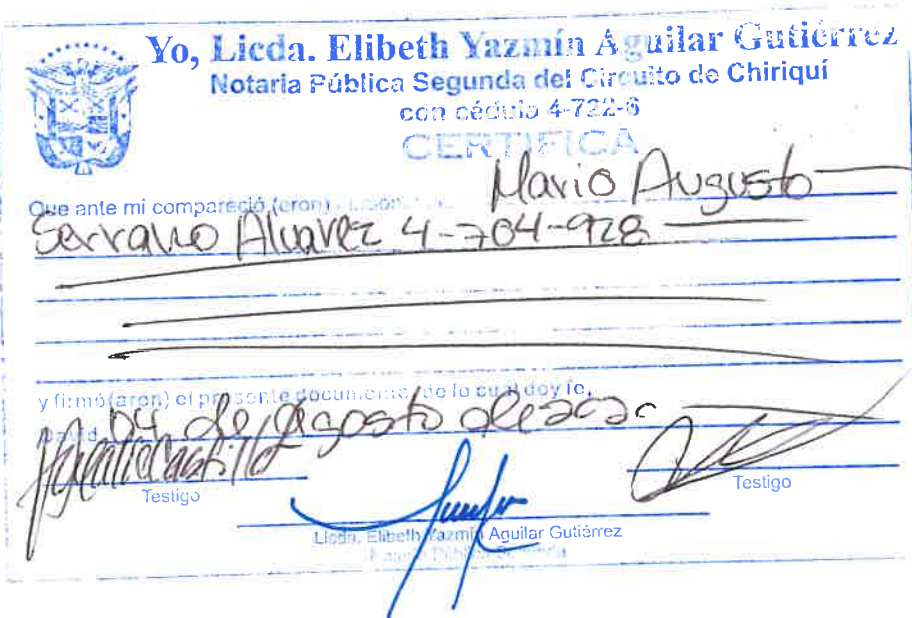 Yo, Licda. Elibeth Yazmín Aguilar Gutiérrez
Notaria Pública Segunda del Circuito de Chiriquí
con cédula 4-722-6
CERTIFICA
Que ante mi compareció (eron) Mario Augusto
Serrano Alvarez 4-704-928
y firmó(aron) el presente documento, de lo cual doy fe,
David 04 de Agosto de
Testigo
Testigo
Licda. Elibeth Yazmín Aguilar Gutiérrez
Notaria Pública Segunda